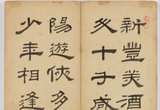 新豐美酒
斗十千咸
陽遊俠多
少年相逢